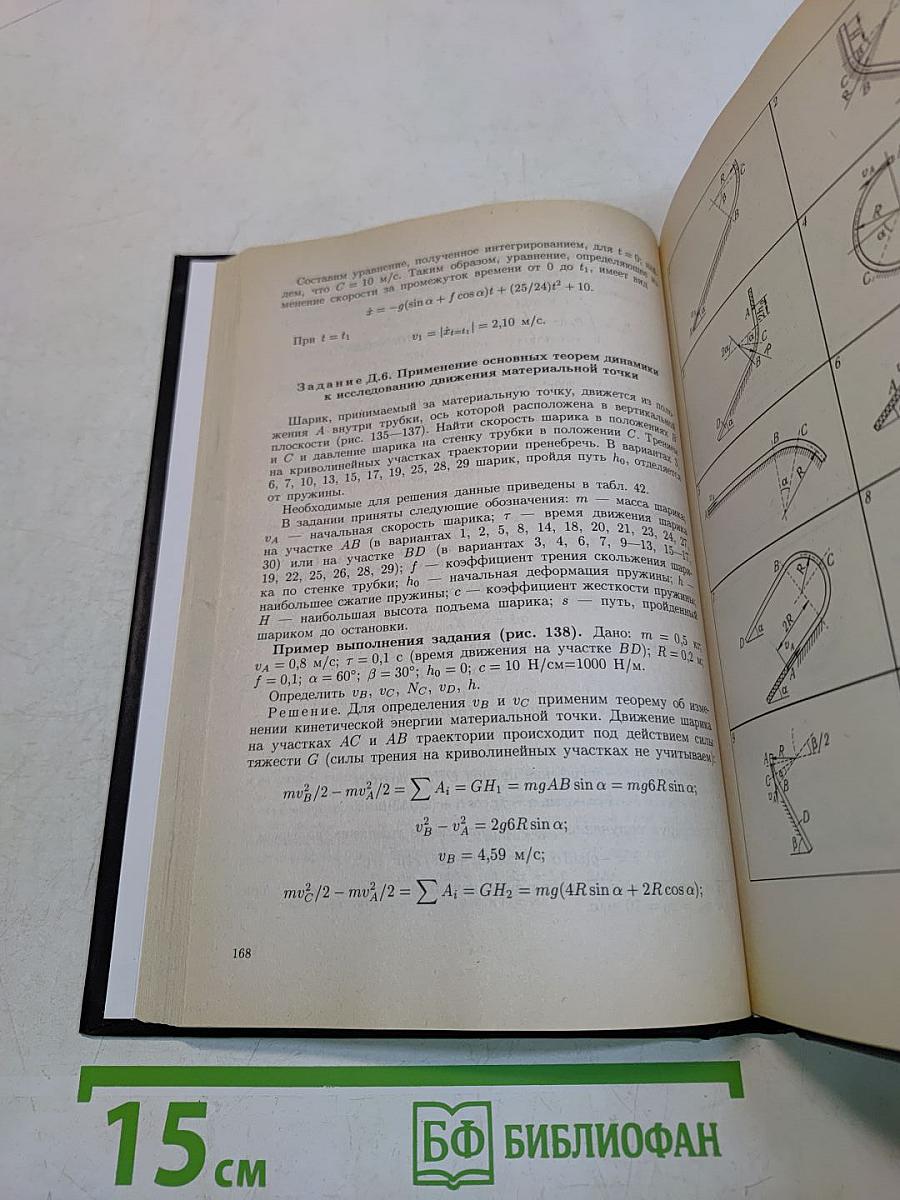 Составим уравнение, полученное интегрированием, для t = 0;
дем, что C = 10 м/с. Таким образом, уравнение, определяющее
менение скорости за промежуток времени от 0 до t₁, имеет вид
ẋ = −g(sin α + f cos α)t + (25/24)t² + 10.
При t = t₁ v₁ = |ẋₜ₌ₜ₁| = 2,10 м/с.
Задание Д.6. Применение основных теорем динамики
к исследованию движения материальной точки
Шарик, принимаемый за материальную точку, движется из поло-
жения A внутри трубки, ось которой расположена в вертикальной
плоскости (рис. 135—137). Найти скорость шарика в положениях B
и C и давление шарика на стенку трубки в положении C. Трением
на криволинейных участках траектории пренебречь. В вариантах 3,
6, 7, 10, 13, 15, 17, 19, 25, 28, 29 шарик, пройдя путь h₀, отделяется
от пружины.
Необходимые для решения данные приведены в табл. 42.
В задании приняты следующие обозначения: m — масса шарика;
v_A — начальная скорость шарика; τ — время движения шарика
на участке AB (в вариантах 1, 2, 5, 8, 14, 18, 20, 21, 23, 24, 27,
30) или на участке BD (в вариантах 3, 4, 6, 7, 9—13, 15—17,
19, 22, 25, 26, 28, 29); f — коэффициент трения скольжения шари-
ка по стенке трубки; h₀ — начальная деформация пружины; h —
наибольшее сжатие пружины; c — коэффициент жесткости пружины;
H — наибольшая высота подъема шарика; s — путь, пройденный
шариком до остановки.
Пример выполнения задания (рис. 138). Дано: m = 0,5 кг;
v_A = 0,8 м/с; τ = 0,1 с (время движения на участке BD); R = 0,2 м;
f = 0,1; α = 60°; β = 30°; h₀ = 0; c = 10 Н/см=1000 Н/м.
Определить v_B, v_C, N_C, v_D, h.
Решение. Для определения v_B и v_C применим теорему об изме-
нении кинетической энергии материальной точки. Движение шарика
на участках AC и AB траектории происходит под действием силы
тяжести G (силы трения на криволинейных участках не учитываем):
mv²_B/2 − mv²_A/2 = ∑ A_i = GH₁ = mgAB sin α = mg6R sin α;
v²_B − v²_A = 2g6R sin α;
v_B = 4,59 м/с;
mv²_C/2 − mv²_A/2 = ∑ A_i = GH₂ = mg(4R sin α + 2R cos α);
168
2
R
C
B
B
4
v_A
R
α
C
A
2α
α
C
B
R
D
α
6
B
C
α
R
A
8
B
R
C
2R
D
α
v_A
A
α
A
R
β/2
C
α
B
D
β
C
R
B
15 см
БФ БИБЛИОФАН